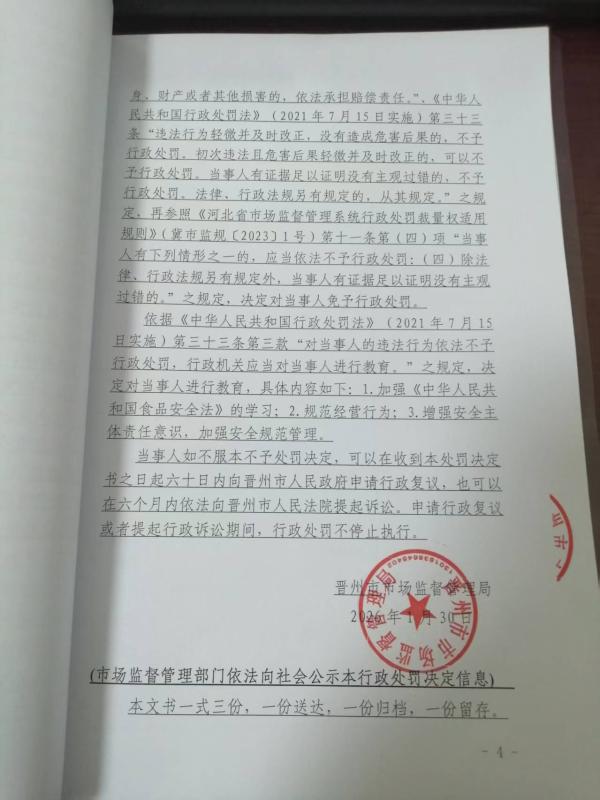 身、财产或者其他损害的，依法承担赔偿责任。”、《中华人
民共和国行政处罚法》（2021年7月15日实施）第三十三
条“违法行为轻微并及时改正，没有造成危害后果的，不予
行政处罚。初次违法且危害后果轻微并及时改正的，可以不
予行政处罚。当事人有证据足以证明没有主观过错的，不予
行政处罚。法律、行政法规另有规定的，从其规定。”之规
定，再参照《河北省市场监督管理系统行政处罚裁量权适用
规则》（冀市监规〔2023〕1号）第十一条第（四）项“当事
人有下列情形之一的，应当依法不予行政处罚：（四）除法
律、行政法规另有规定外，当事人有证据足以证明没有主观
过错的。”之规定，决定对当事人免予行政处罚。
依据《中华人民共和国行政处罚法》（2021年7月15
日实施）第三十三条第三款“对当事人的违法行为依法不予
行政处罚，行政机关应当对当事人进行教育。”之规定，决
定对当事人进行教育，具体内容如下：1.加强《中华人民共
和国食品安全法》的学习；2.规范经营行为；3.增强安全主
体责任意识，加强安全规范管理。
当事人如不服本不予处罚决定，可以在收到本处罚决定
书之日起六十日内向晋州市人民政府申请行政复议，也可以
在六个月内依法向晋州市人民法院提起诉讼。申请行政复议
或者提起行政诉讼期间，行政处罚不停止执行。
晋州市市场监督管理局
2026年1月30日
晋州市市场监督管理局
(市场监督管理部门依法向社会公示本行政处罚决定信息)
本文书一式三份，一份送达，一份归档，一份留存。
- 4 -